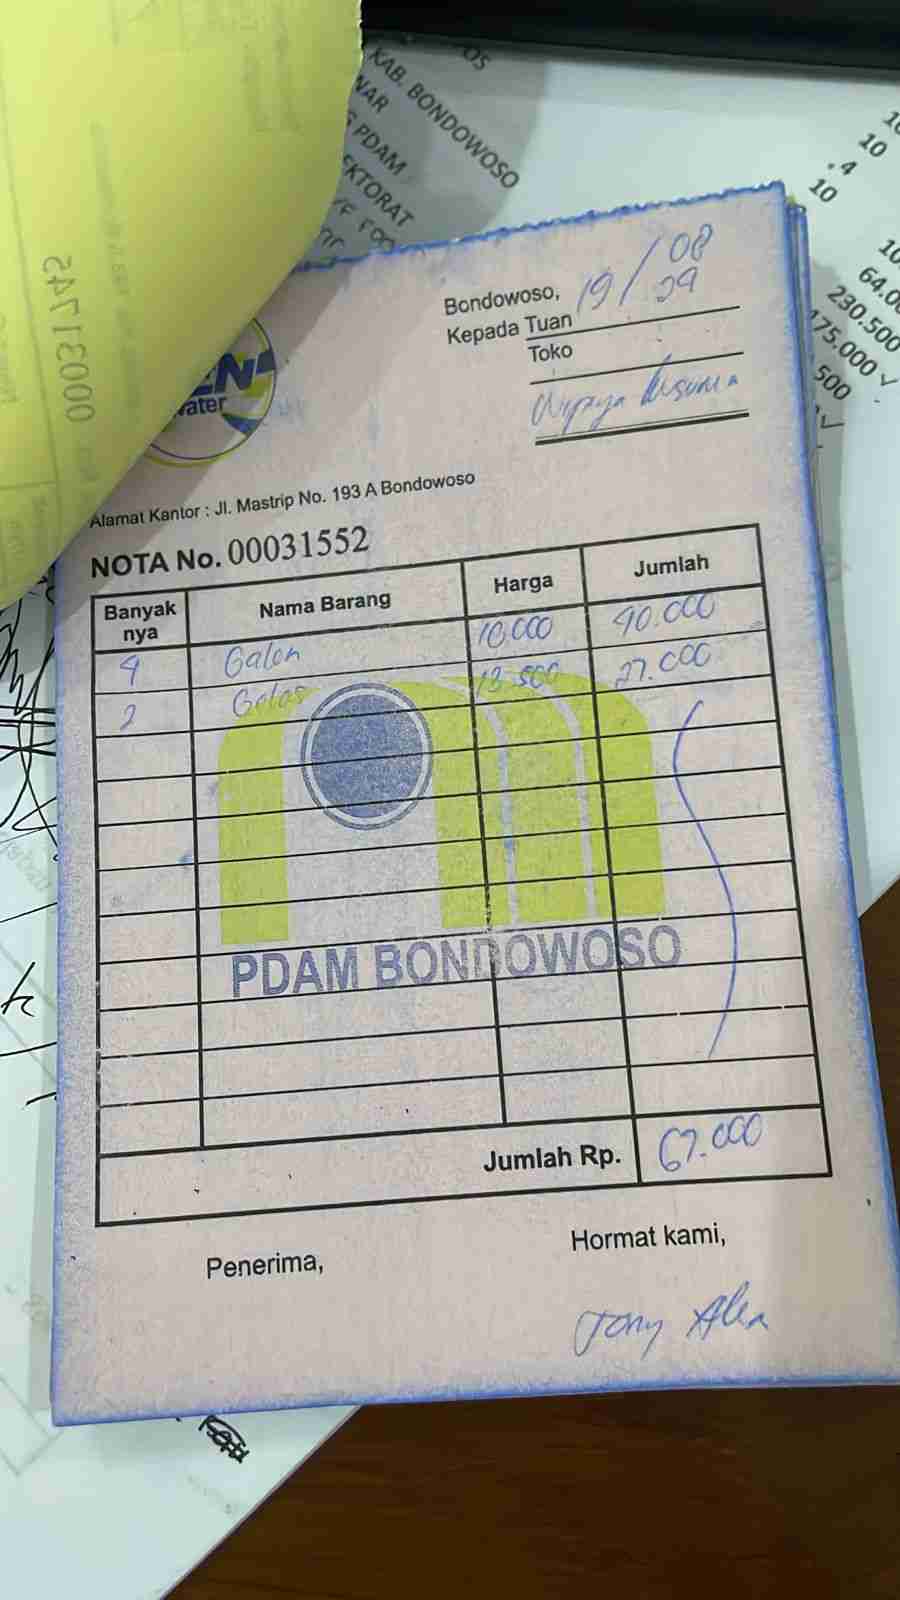 OS
KAB. BONDOWOSO
NAR
PDAM
EKTORAT
10
10
.4
10
64.0
230.500
175.000
500
00031745
Bondowoso, 19/08 24
Kepada Tuan
Toko
Wijaya Kusuma
water
Alamat Kantor : Jl. Mastrip No. 193 A Bondowoso
NOTA No. 00031552
Banyak nya Nama Barang Harga Jumlah
4 Galon 10.000 40.000
2 Gelas 13.500 27.000
PDAM BONDOWOSO
Jumlah Rp. 67.000
Penerima, Hormat kami,
Tony